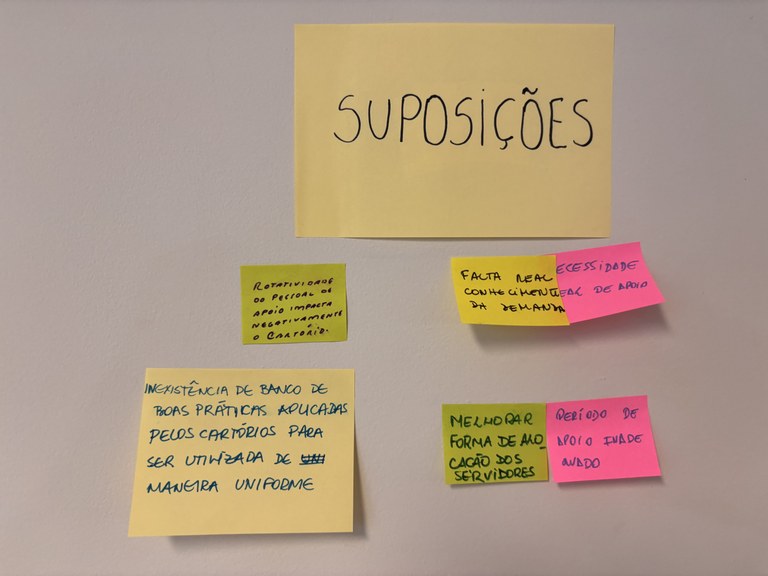 SUPOSIÇÕES
ROTATIVIDADE
DO PESSOAL DE
APOIO IMPACTA
NEGATIVAMENTE
O CARTÓRIO.
FALTA REAL
CONHECIMENTO
DA DEMANDA
ECESSIDADE
EAL DE APOIO
INEXISTÊNCIA DE BANCO DE
BOAS PRÁTICAS APLICADAS
PELOS CARTÓRIOS PARA
SER UTILIZADA DE
MANEIRA UNIFORME
MELHORAR
FORMA DE ALO_
CAÇÃO DOS
SERVIDORES
PERÍODO DE
APOIO INADE
QUADO